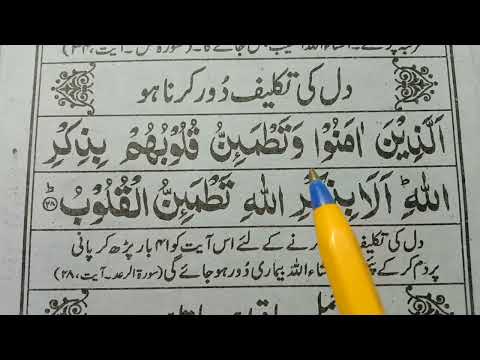 دل کی تکلیف دُور کرنا ہو
اَلَّذِیْنَ اٰمَنُوْا وَتَطْمَىِٕنُّ قُلُوْبُهُمْ بِذِكْرِ
اللهِ ؕ اَلَا بِذِكْرِ اللهِ تَطْمَىِٕنُّ الْقُلُوْبُ ؕ ﴿۲۸﴾
دل کی تکلیف کرنے کے لئے اس آیت کو ۴۱ بار پڑھ کر پانی
پر دم کر کے اللہ بیماری دُور ہو جائے گی (سورۃ الرعد۔ آیت، ۲۸)